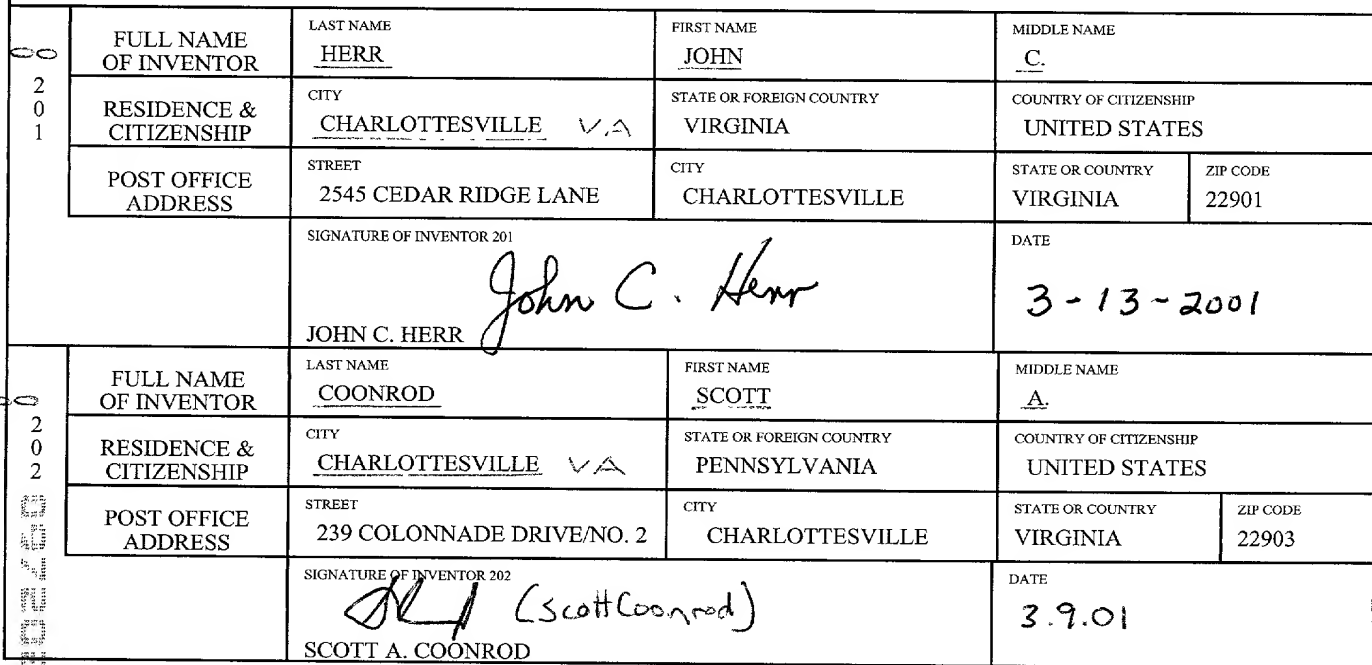 FULL NAME OF INVENTOR LAST NAME HERR FIRST NAME JOHN MIDDLE NAME C.
201
RESIDENCE & CITIZENSHIP CITY CHARLOTTESVILLE VA STATE OR FOREIGN COUNTRY VIRGINIA COUNTRY OF CITIZENSHIP UNITED STATES
POST OFFICE ADDRESS STREET 2545 CEDAR RIDGE LANE CITY CHARLOTTESVILLE STATE OR COUNTRY VIRGINIA ZIP CODE 22901
SIGNATURE OF INVENTOR 201 DATE
John C. Herr 3-13-2001
JOHN C. HERR
FULL NAME OF INVENTOR LAST NAME COONROD FIRST NAME SCOTT MIDDLE NAME A.
202
RESIDENCE & CITIZENSHIP CITY CHARLOTTESVILLE VA STATE OR FOREIGN COUNTRY PENNSYLVANIA COUNTRY OF CITIZENSHIP UNITED STATES
POST OFFICE ADDRESS STREET 239 COLONNADE DRIVE/NO. 2 CITY CHARLOTTESVILLE STATE OR COUNTRY VIRGINIA ZIP CODE 22903
SIGNATURE OF INVENTOR 202 DATE
(Scott Coonrod) 3.9.01
SCOTT A. COONROD